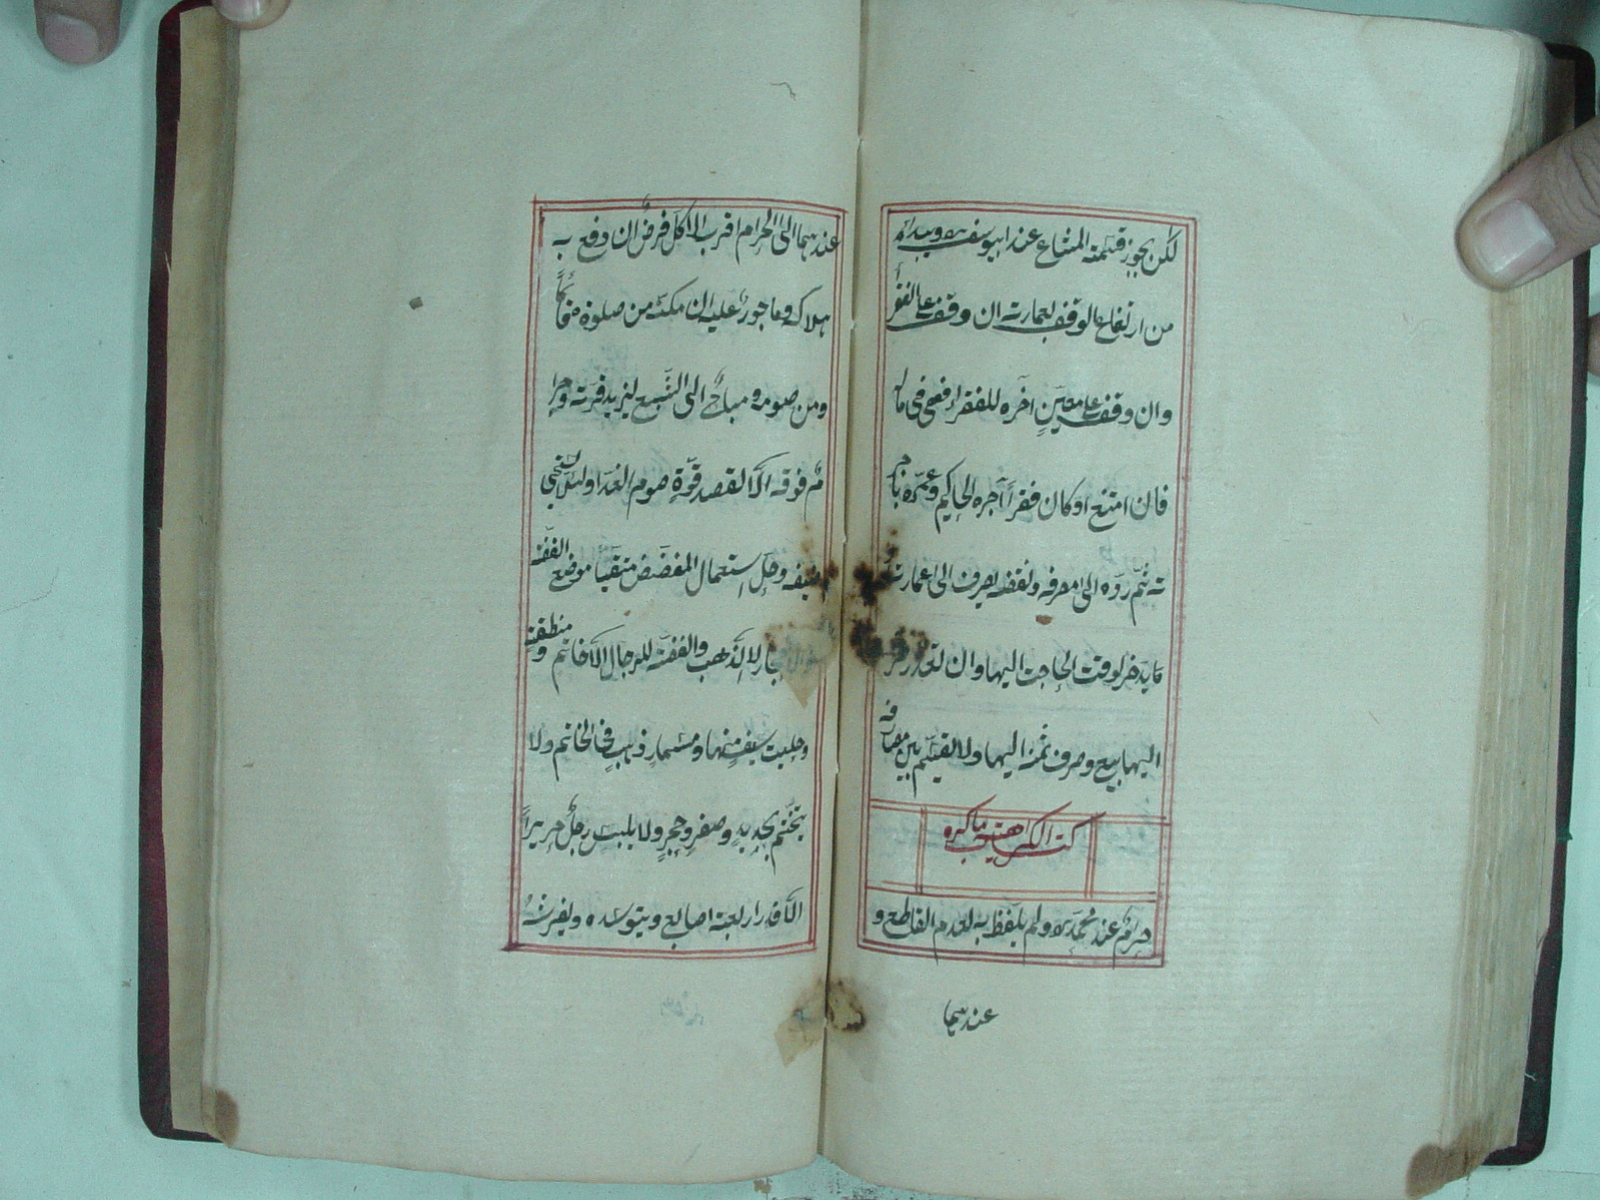 لكن يجوز قسمته المشاع عند ابیوسف رح ويبداء
من ارتفاع الوقف لعمارته ان وقف على الفقرأ
وان وقف على معين اخره للفقراء فهى فى ماله
فان امتنع او كان فقرأ آجره الحاكم وعمره باجر
ته ثم رده الى مصرفه ونقضه يصرف الى عمارته
يدخر لوقت الحاجت اليها وان تعذر صرفه
اليها بيع وصرف ثمنه اليها ولا يقسم بين مصارفه
كتاب الكراهية ما كره
حرام عند محمد رح ولم يلفظ به لعدم القاطع و
عندهما
عندهما الى الحرام اقرب الاكل فرض ان دفع به
هلاكه وماجور عليه ان مكنه من صلوة قائماً
ومن صومه ومباح الى الشبع ليزيد قوته وحرا
م فوقه الا لقصد قوة صوم الغد اولئلا يستحيى
ضيفه وحل استعمال المفضض متقيا موضع الفضة
لا الذهب والفضة للرجال الا خاتم ومنطقة
وحليت سيف منها ومسمار ذهب فى الخاتم ولا
يتختم بحديد وصفر وحجر ولا يلبس رجل حريراً
الا قدر اربعة اصابع ويتوسده ويفرشه